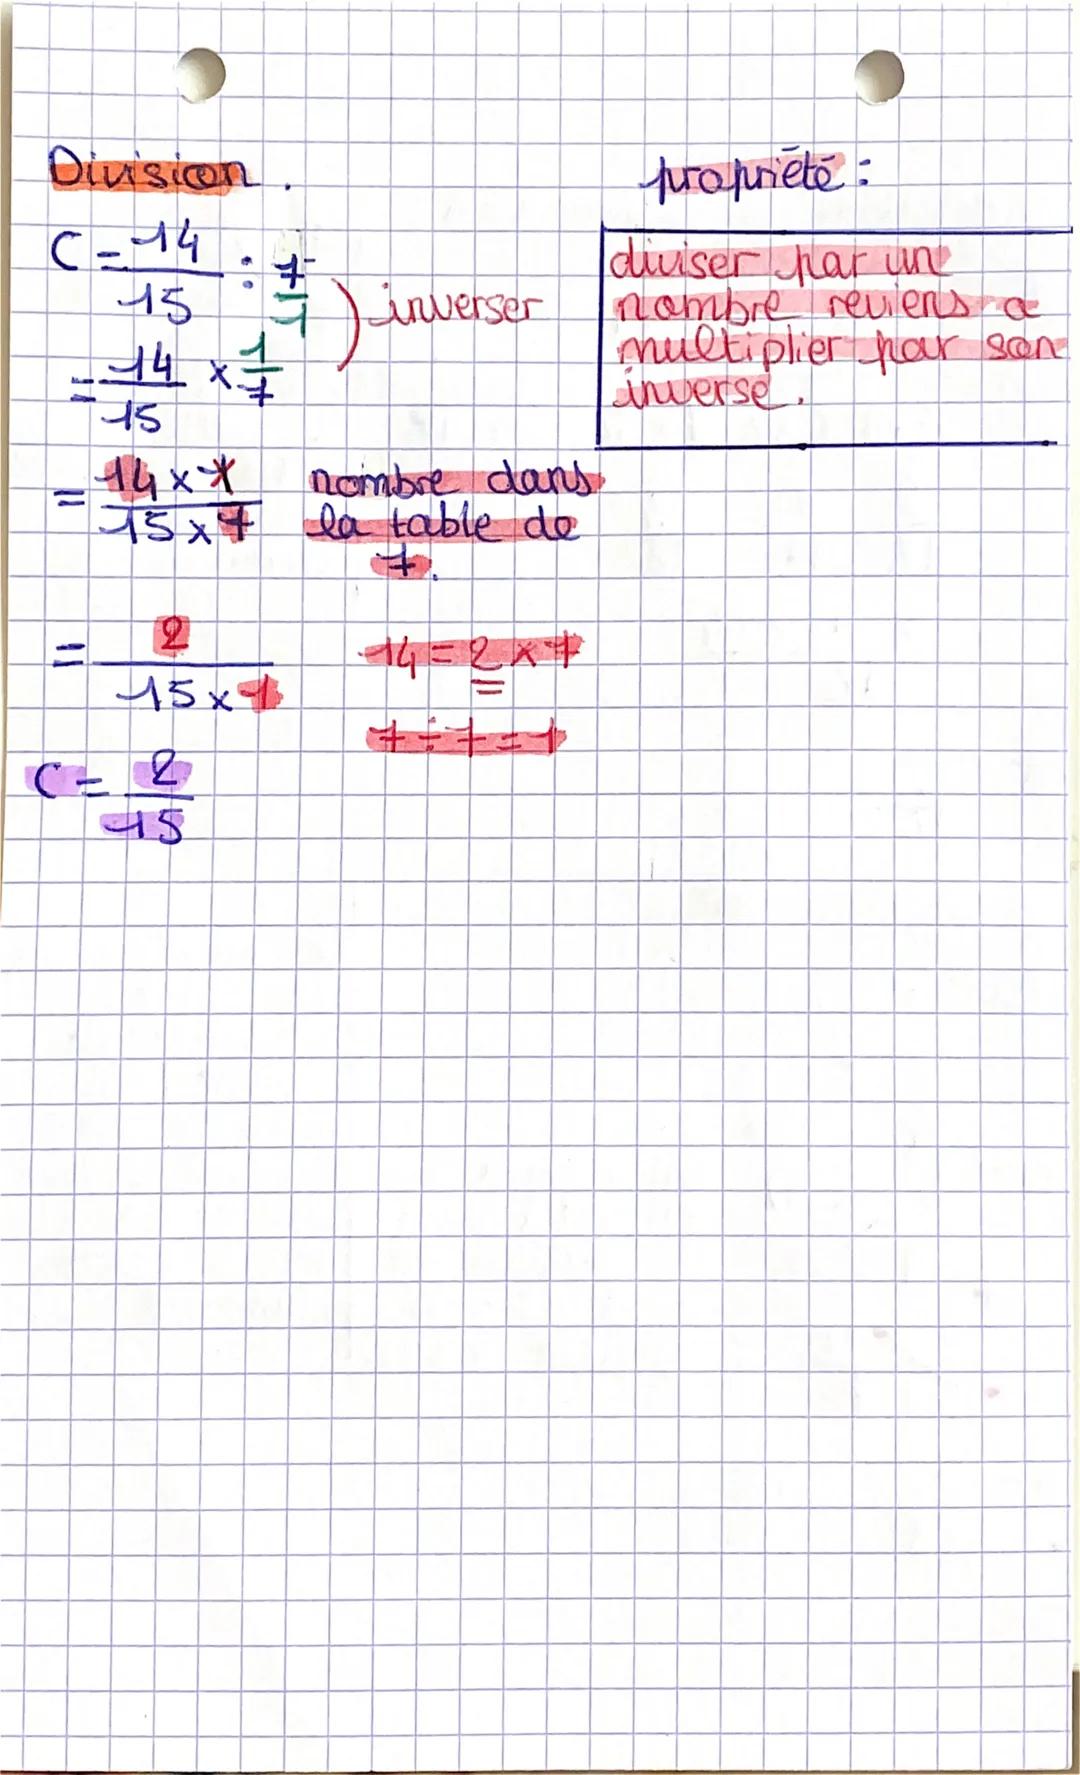 Division.
C = 14/15 : 7/1 ) inverser
= 14/15 × 1/7
= 14 × 1 / 15 × 7
nombre dans
la table de
7.
= 2 / 15 × 1
14 = 2 × 7
7 ÷ 7 = 1
C = 2/15
propriété :
diviser par un
nombre reviens a
multiplier par son
inverse.